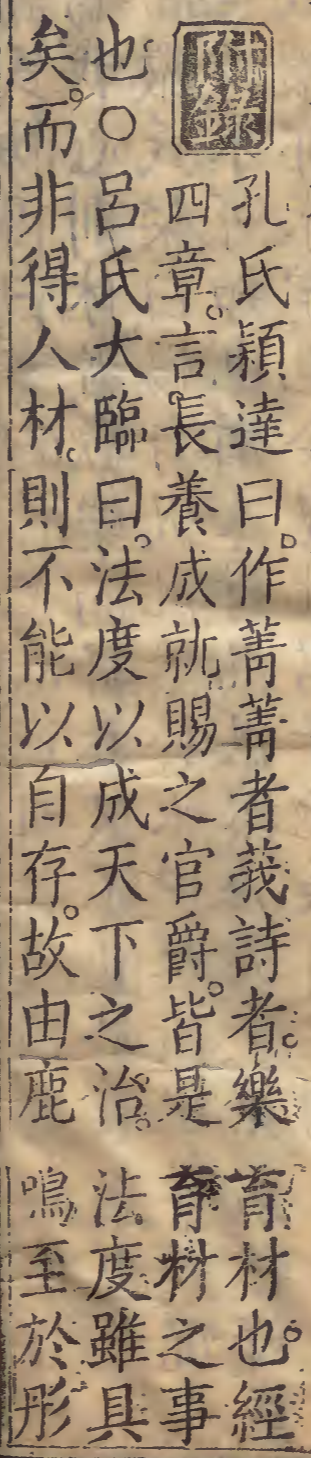 附錄
孔氏穎達曰。作菁菁者莪詩者。樂育材也。經
四章。言長養成就賜之官爵。皆是育材之事
也○呂氏大臨曰。法度以成天下之治。法度雖具
矣。而非得人材。則不能以自存。故由鹿鳴至於彤